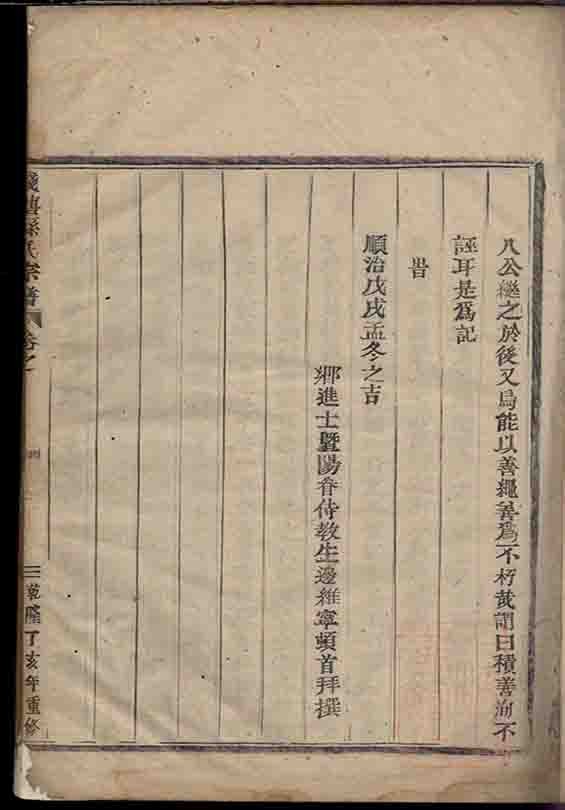 八公繼之於後又烏能以善繩善爲不朽哉謂曰積善洵不
誣耳是爲記
旹
順治戊戌孟冬之吉
鄉進士暨陽眷侍教生邊維寧頓首拜撰
孫氏宗譜 卷之
三 乾隆丁亥年重修